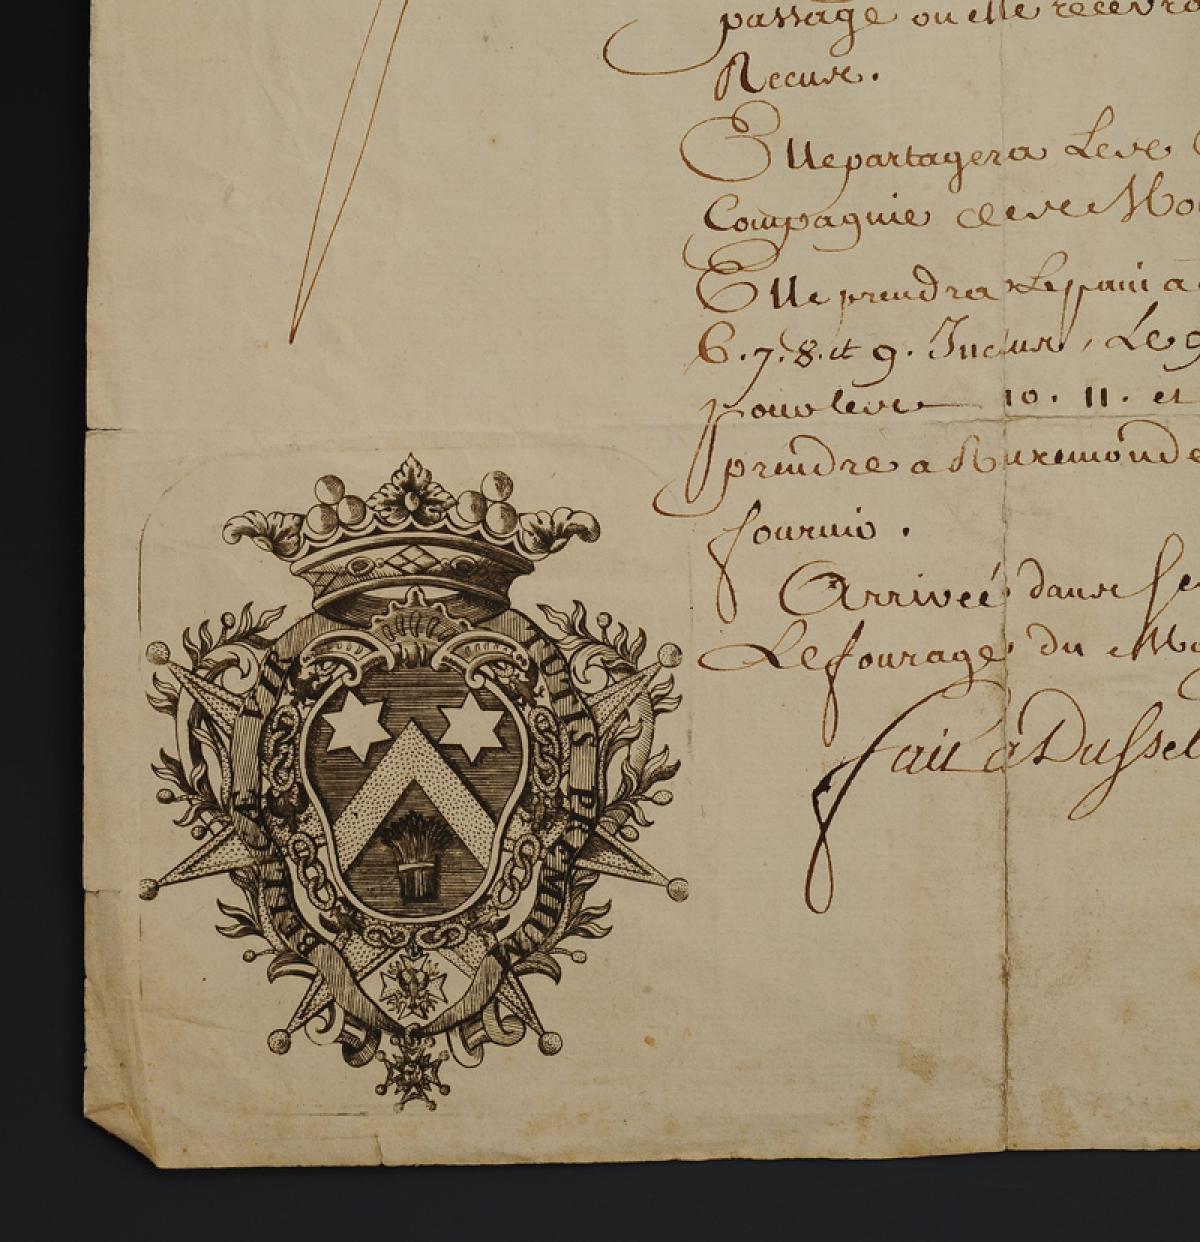 passage ou elle recevra
Recue.
Elle partagera Les
Compagnie des Mo
Elle prendra Le pain a
6. 7. 8. et 9. Inclus, Le 9
pour les 10. 11. et
prendre a Ruremonde
fourni.
Arrivée dans Se
Le fourage du Mag
fait à Dussel
BELLICÆ VIRTUTIS PRÆMIUM